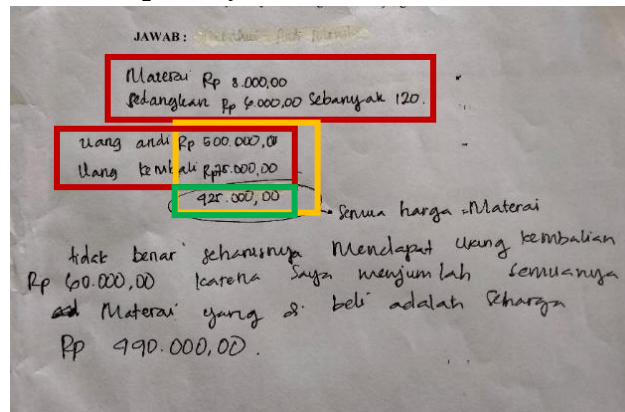 JAWAB :
Materai Rp 8.000,00
Sedangkan Rp 6.000,00 Sebanyak 120.
uang andi Rp 500.000,00
Uang kembali Rp75.000,00
425.000,00
Semua harga Materai
tidak benar seharusnya Mendapat uang kembalian
Rp 60.000,00 karena saya menjumlah semuanya
Materai yang di beli adalah Seharga
Rp 990.000,00.